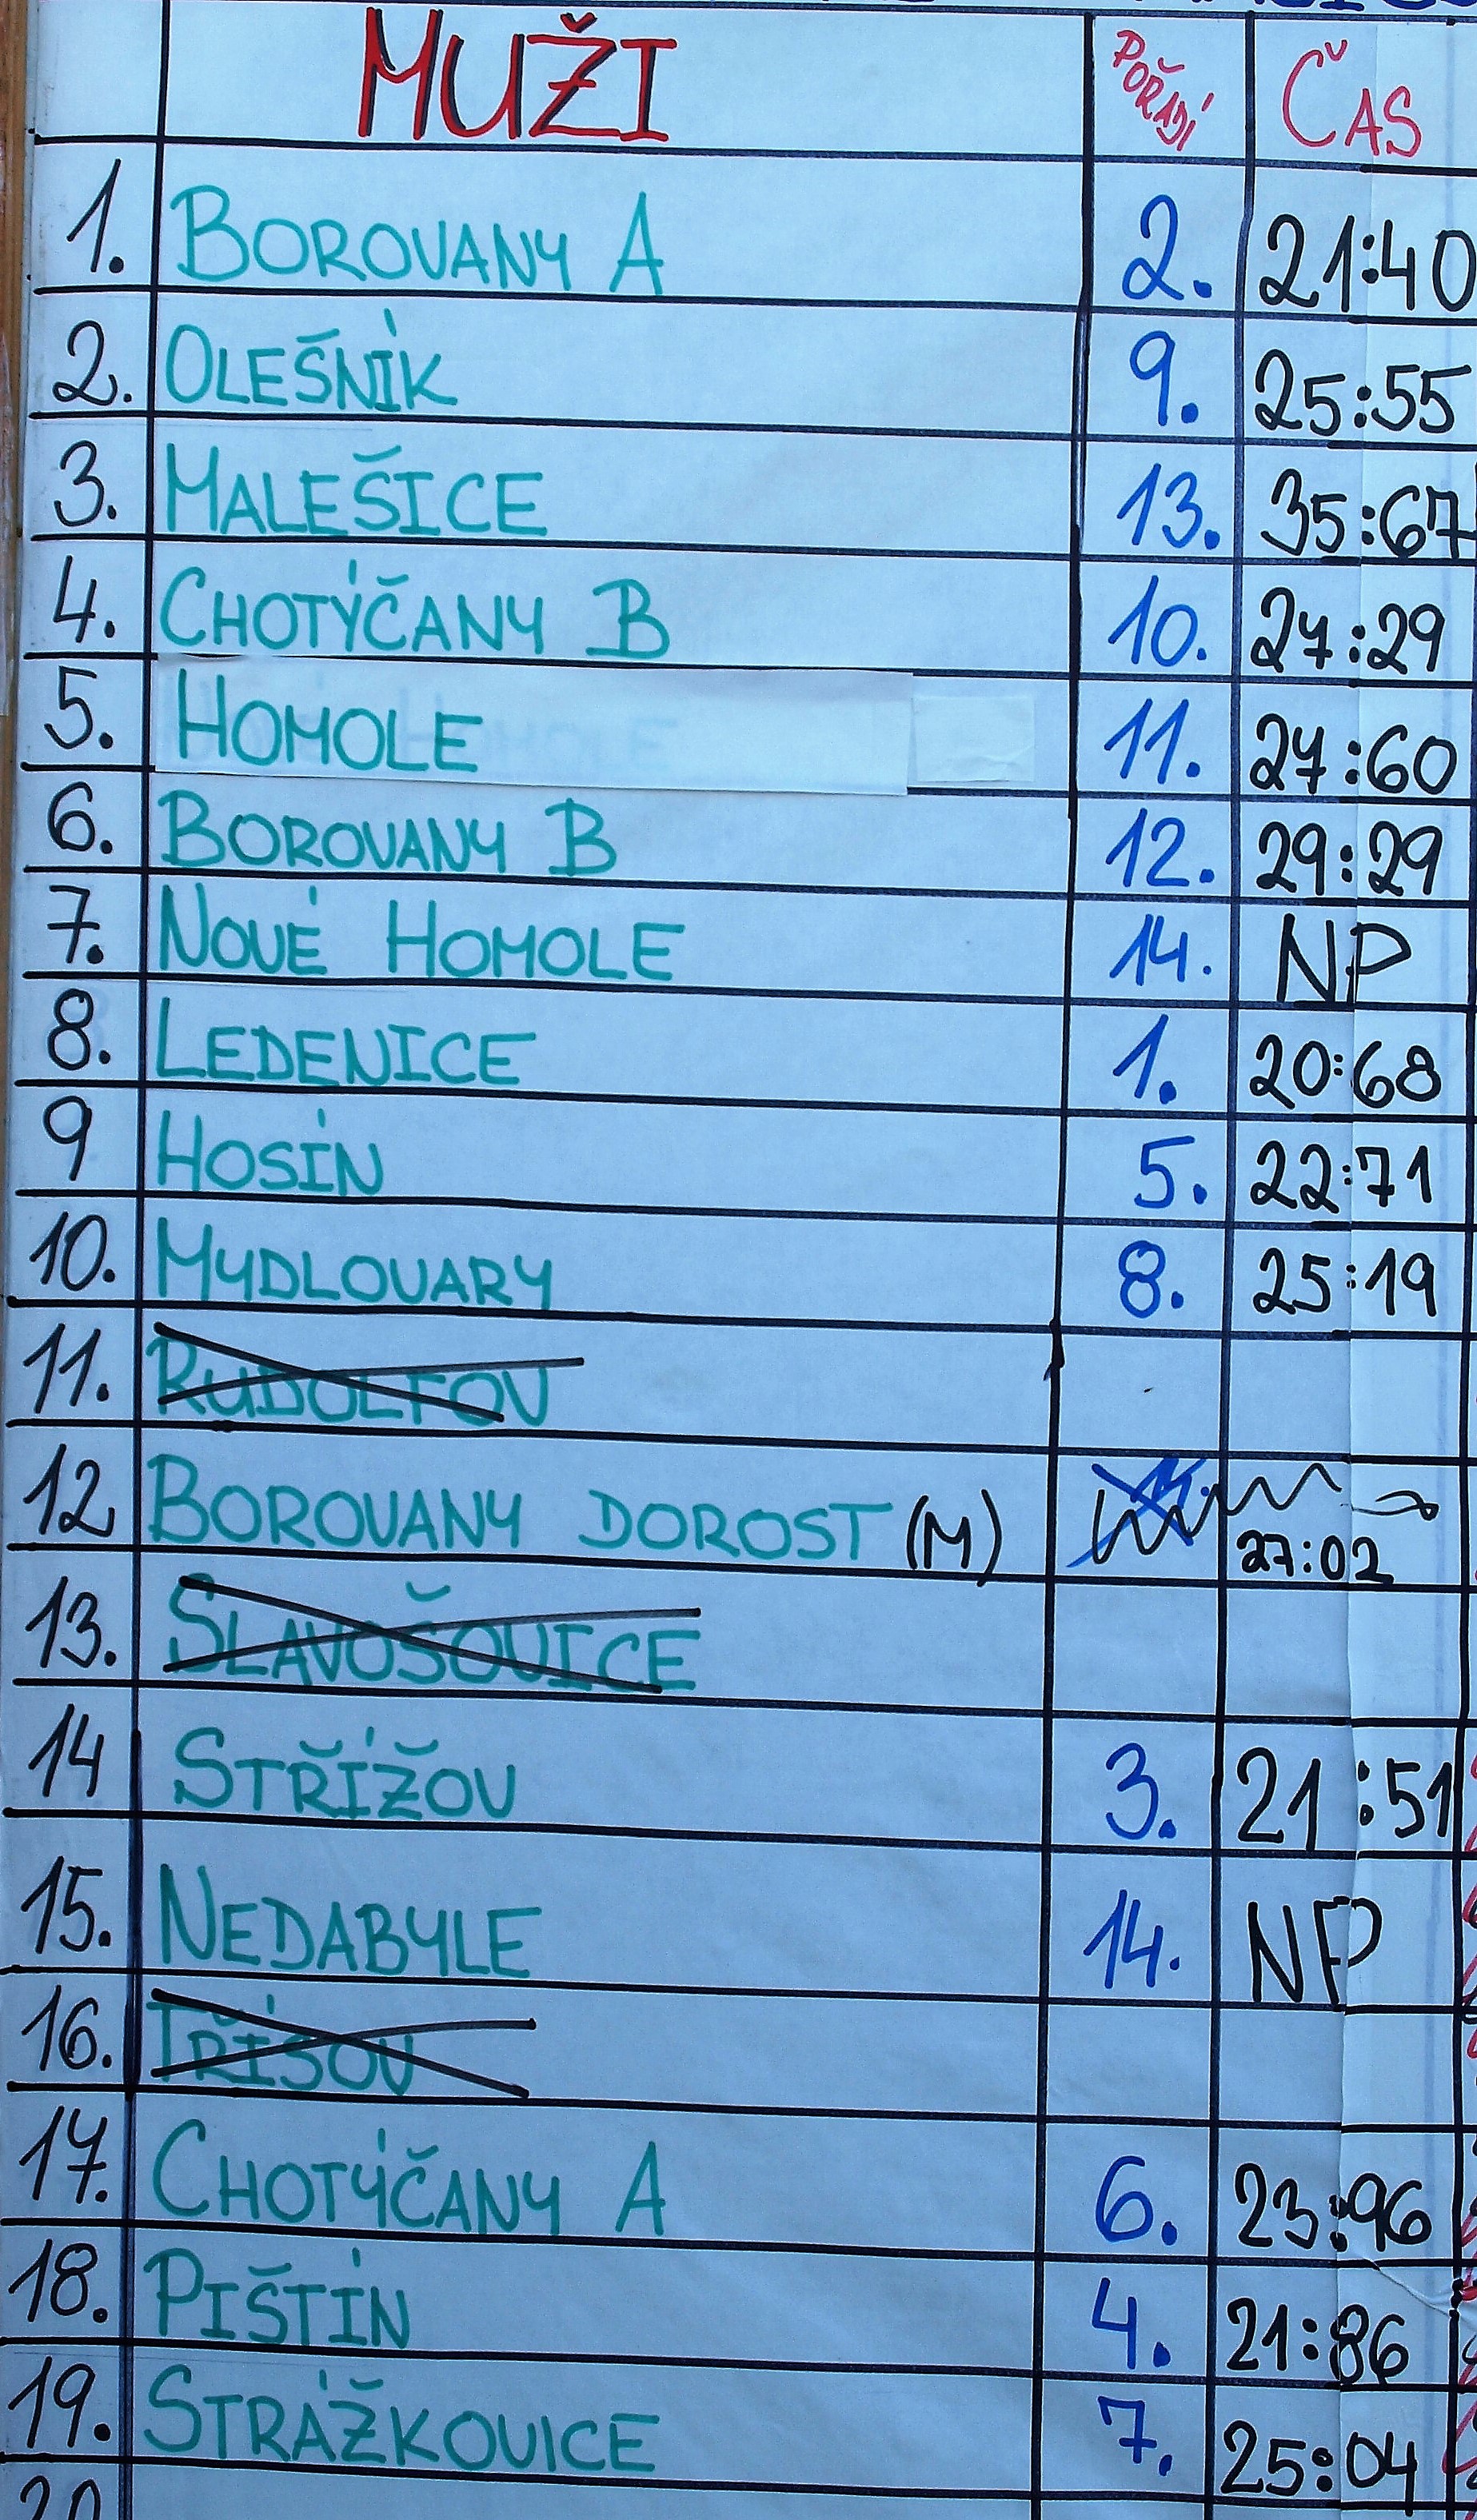 MUŽI POŘADÍ ČAS
1. BOROVANY A 2. 21:40
2. OLEŠNÍK 9. 25:55
3. MALEŠICE 13. 35:67
4. CHOTÝČANY B 10. 27:29
5. HOMOLE 11. 27:60
6. BOROVANY B 12. 29:29
7. NOVÉ HOMOLE 14. NP
8. LEDENICE 1. 20:68
9 HOSÍN 5. 22:71
10. MYDLOVARY 8. 25:19
11. RUDOLFOV
12. BOROVANY DOROST (M) 27:02
13. SLAVOŠOVICE
14 STŘÍŽOV 3. 21:51
15. NEDABYLE 14. NP
16. TŘÍSOV
17. CHOTÝČANY A 6. 23:96
18. PIŠTÍN 4. 21:86
19. STRÁŽKOVICE 7. 25:04
20